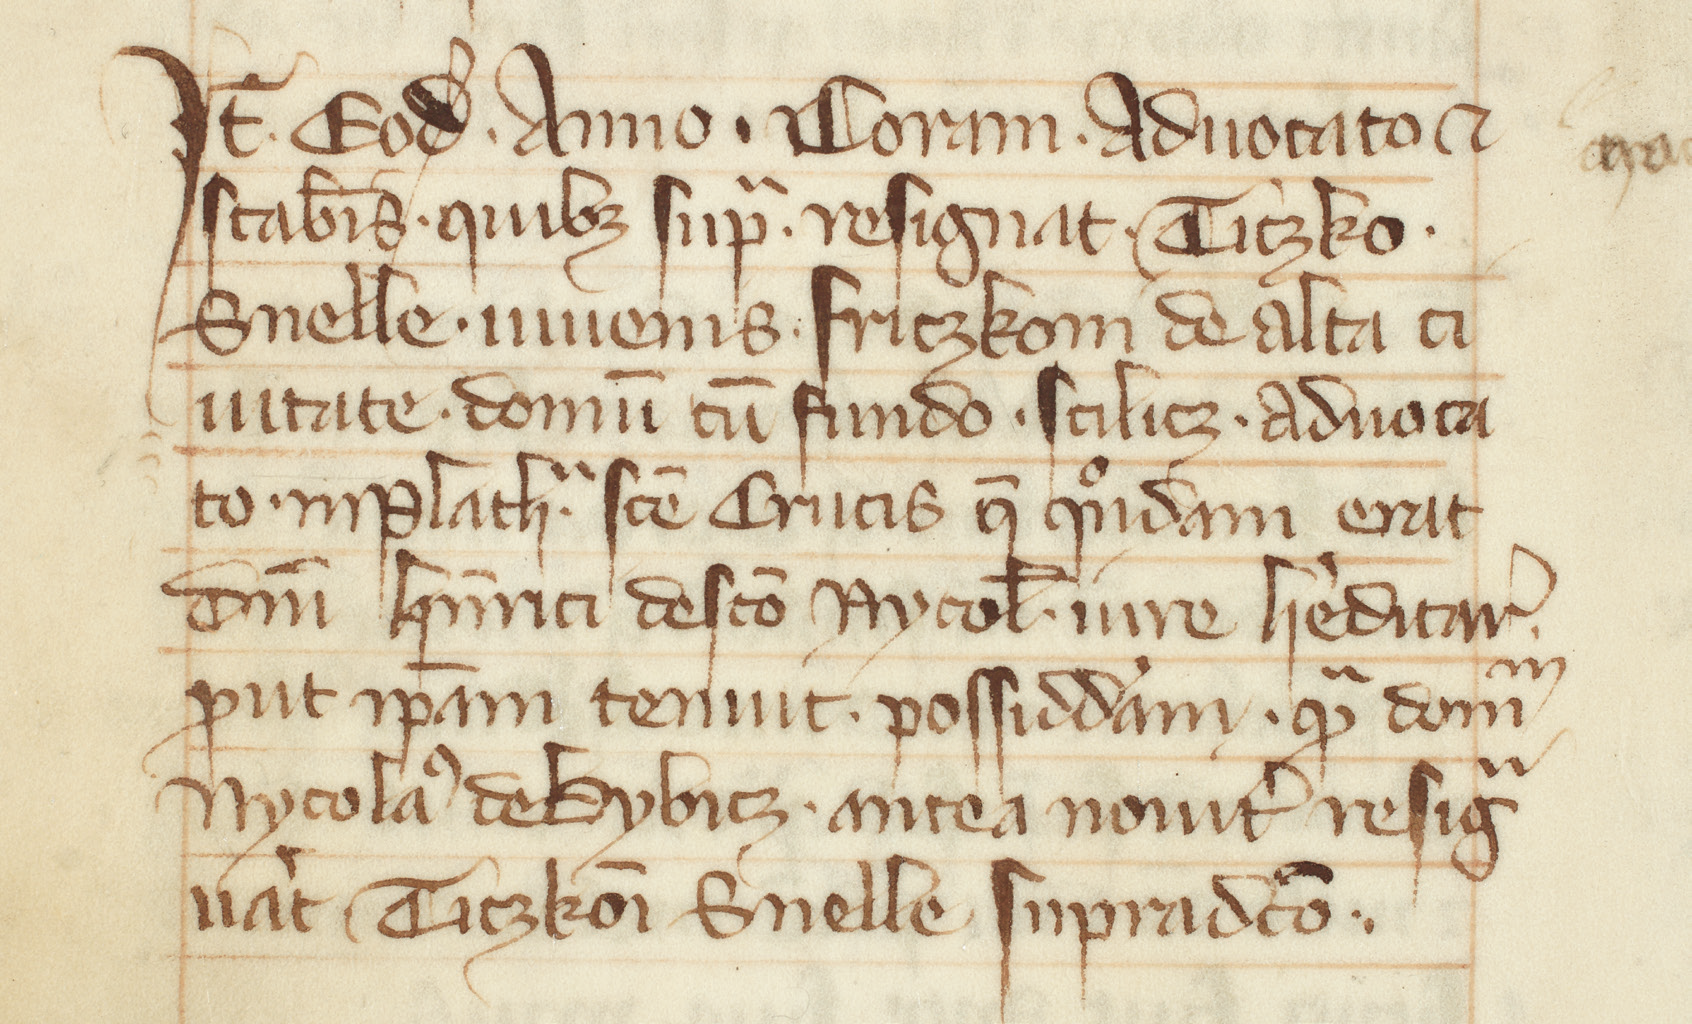 Jt̄. Eod̄. Anno. Coram. Advocato ⁊
scab̄is. quibꝫ supᷓ. resignat. Ticzko.
Snelle. iuvenis. friczkom de alta ci
uitate. domū cū fundo. scilicꝫ. advoca
to. in platħ. sc̄e Crucis q̄ qͦndam erat
dn̄i hīnrici de sc̄o Nycol̄. iure h̓editar̓.
ꝓut ip̄am tenuit. possiddᷓam. qᷓ domᷓm
Nycolaꝰ de Kybicz. antea nouit̓ resigᷓ
uat̓ Ticzkoī Snelle supradc̄o.